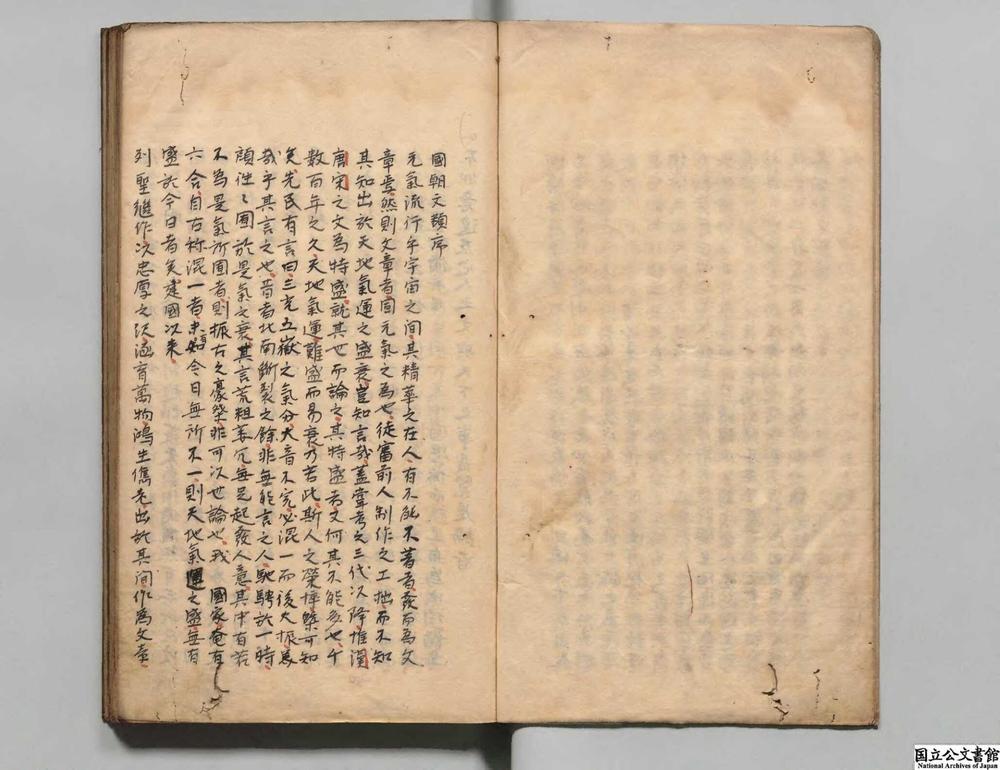 國朝文類序
元氣流行乎宇宙之間其精華之在人有不能不著者發而為文
章焉然則文章者固元氣之為也徒審前人制作之工拙而不知
其知出於天地氣運之盛衰豈知言哉蓋嘗考之三代以降惟漢
唐宋之文為特盛就其世而論之其特盛者又何其不能多也千
數百年之久天地氣運難盛而易衰乃若此斯人之榮悴概可知
矣先民有言曰三光五嶽之氣分大音不完必混一而後大振美
哉乎其言之也昔者北南斷裂之餘非無能言之人馳騁於一時
顧往〻囿於是氣之衰其言荒粗萎冗無足起發人意其中有若
不為是氣所囿者則振古之豪傑非可以世論也我 國家奄有
六合自古称混一者未始今日無所不一則天地氣運之盛無有
盛於今日者矣建國以来
列聖繼作以忠厚之澤涵育萬物鴻生儁老出於其間作為文章
国立公文書館
National Archives of Japan